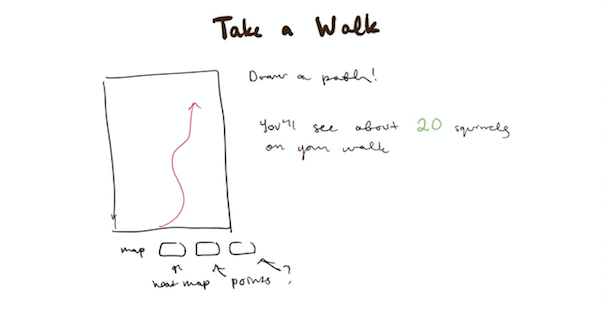 Take a Walk
Draw a path!
You'll see about 20 squirrels
on your walk
map
heat map points ?